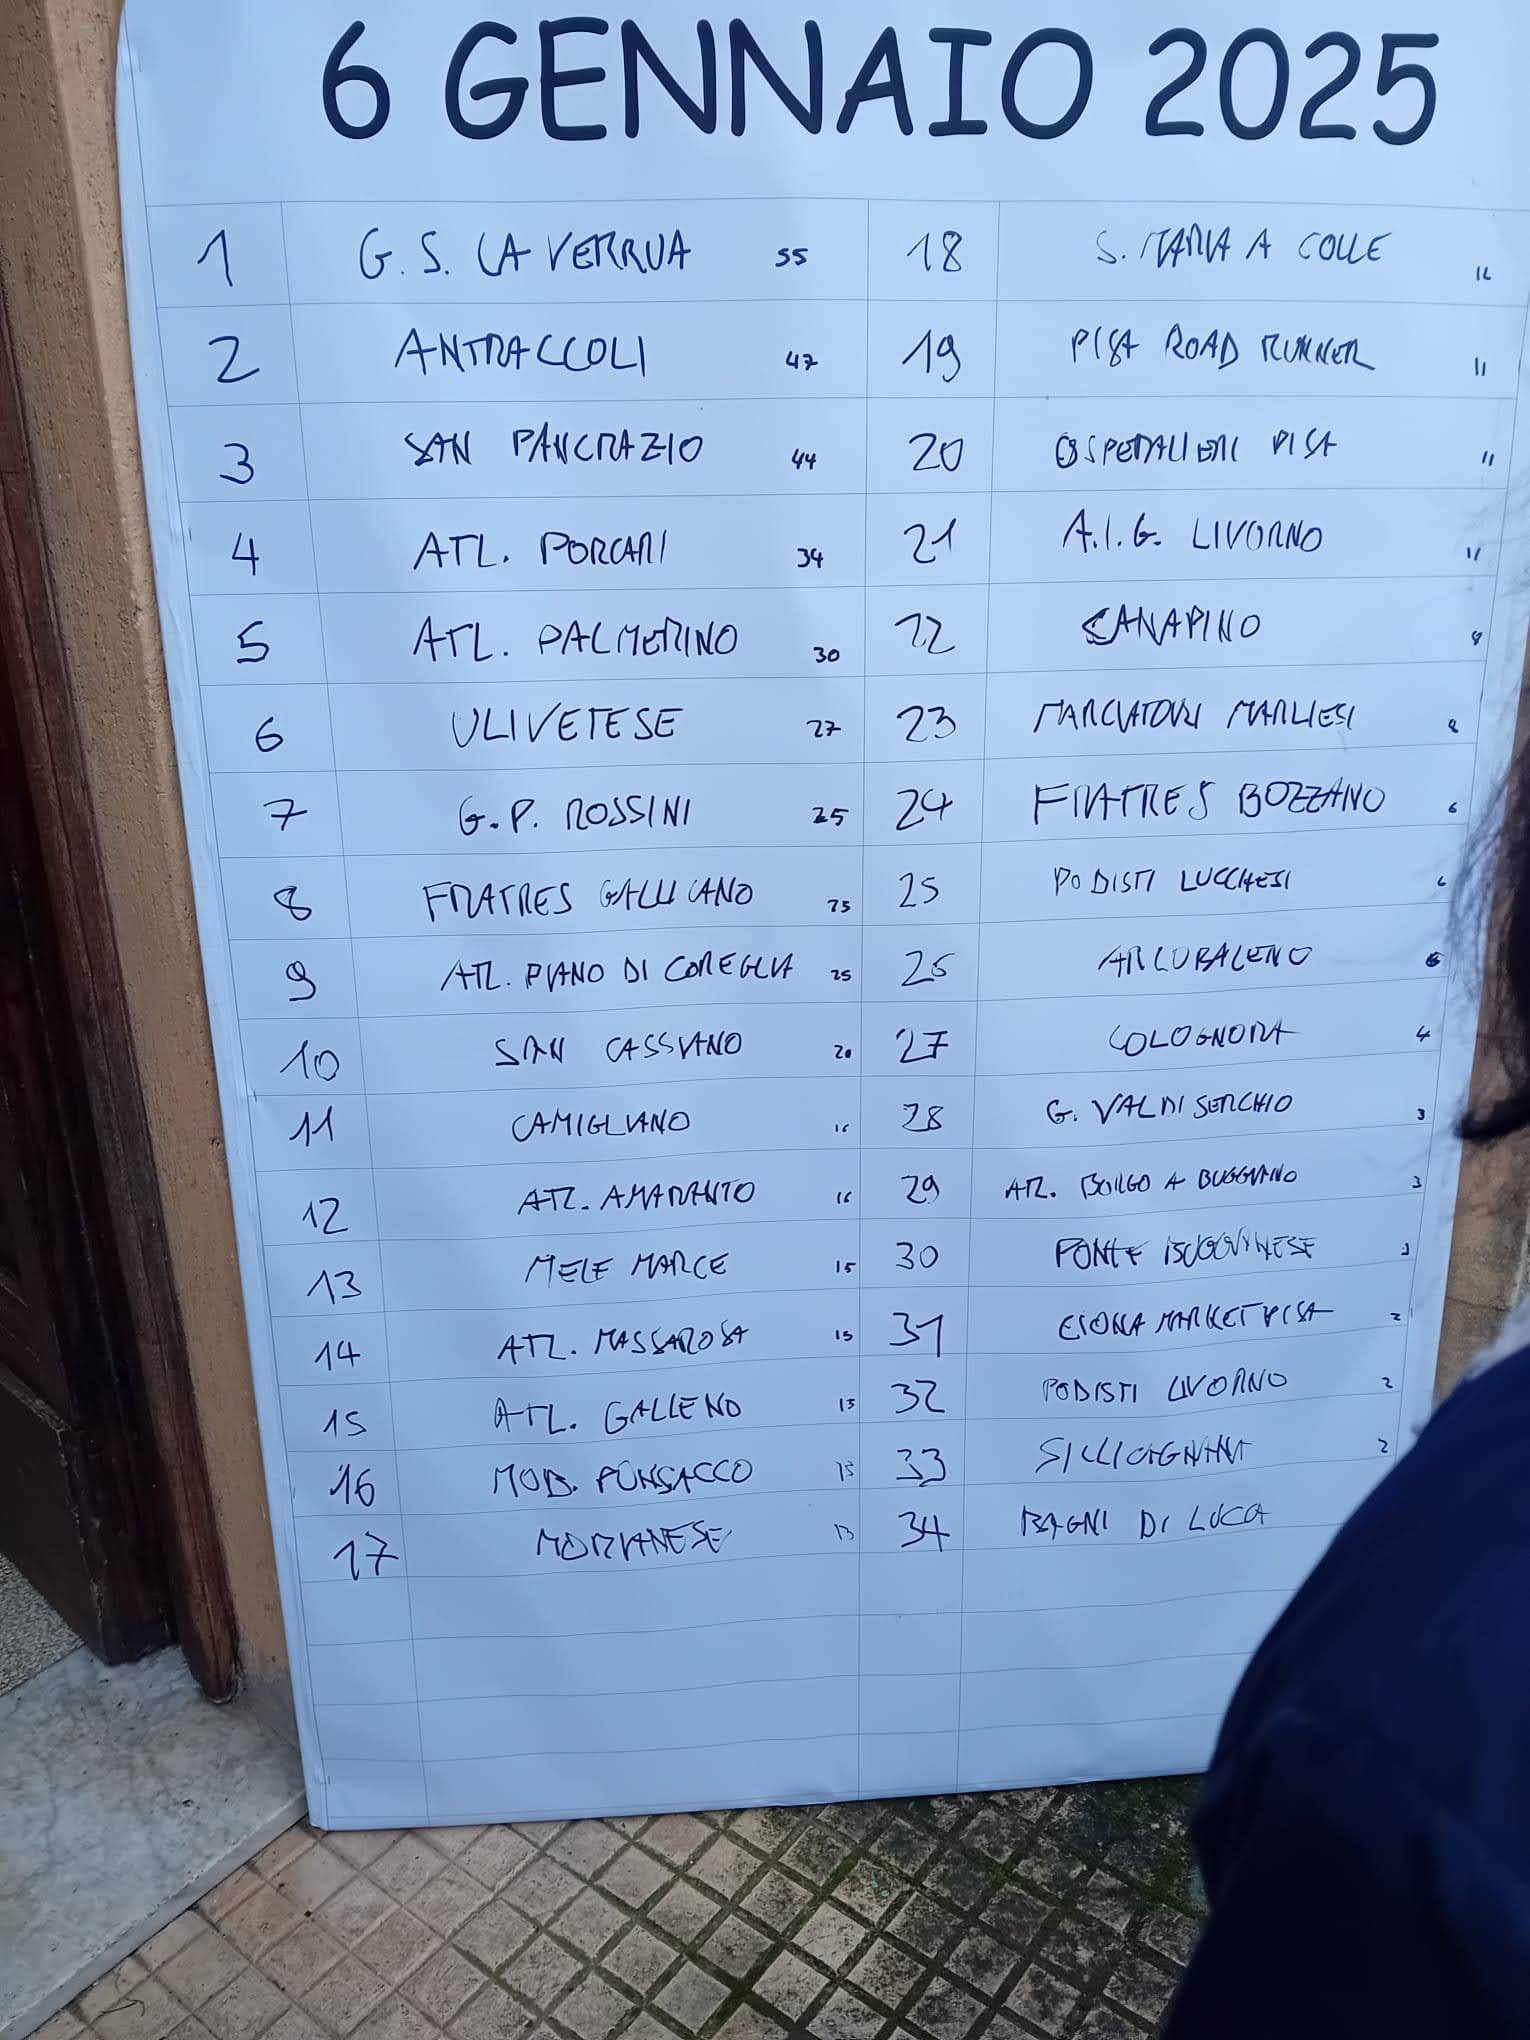 6 GENNAIO 2025
1 G. S. LA VERRUA 55
2 ANTRACCOLI 47
3 SAN PANCRAZIO 44
4 ATL. PORCARI 34
5 ATL. PALMERINO 30
6 ULIVETESE 27
7 G.P. ROSSINI 25
8 FRATRES GALLICANO 25
9 ATL. PIANO DI COREGLIA 25
10 SAN CASSIANO 20
11 CAMIGLIANO 16
12 ATL. AMARANTO 16
13 MELE MARCE 15
14 ATL. MASSAROSA 15
15 ATL. GALLENO 15
16 MOB. PONSACCO
17 MORIANESE 13
18 S. MARIA A COLLE
19 PISA ROAD RUNNER 11
20 OSPEDALIERI PISA 11
21 A.I.G. LIVORNO 11
22 CANAPINO
23 MARCIATORI MARLIESI 8
24 FRATRES BOZZANO 6
25 PODISTI LUCCHESI 6
26 ARCOBALENO
27 COLOGNORA 4
28 G. VAL DI SERCHIO 3
29 ATL. BORGO A BUGGIANO 3
30 PONTE BUGGIANESE 3
31 MARKET PISA 2
32 PODISTI LIVORNO 2
33 SILLICAGNANA 2
34 BAGNI DI LUCCA